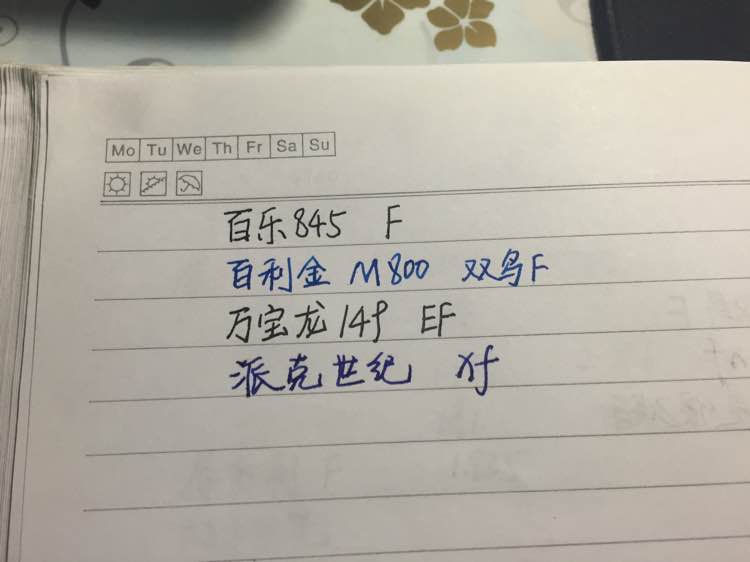 Mo Tu We Th Fr Sa Su
百乐845 F
百利金 M800 双鸟F
万宝龙149 EF
派克世纪 xf